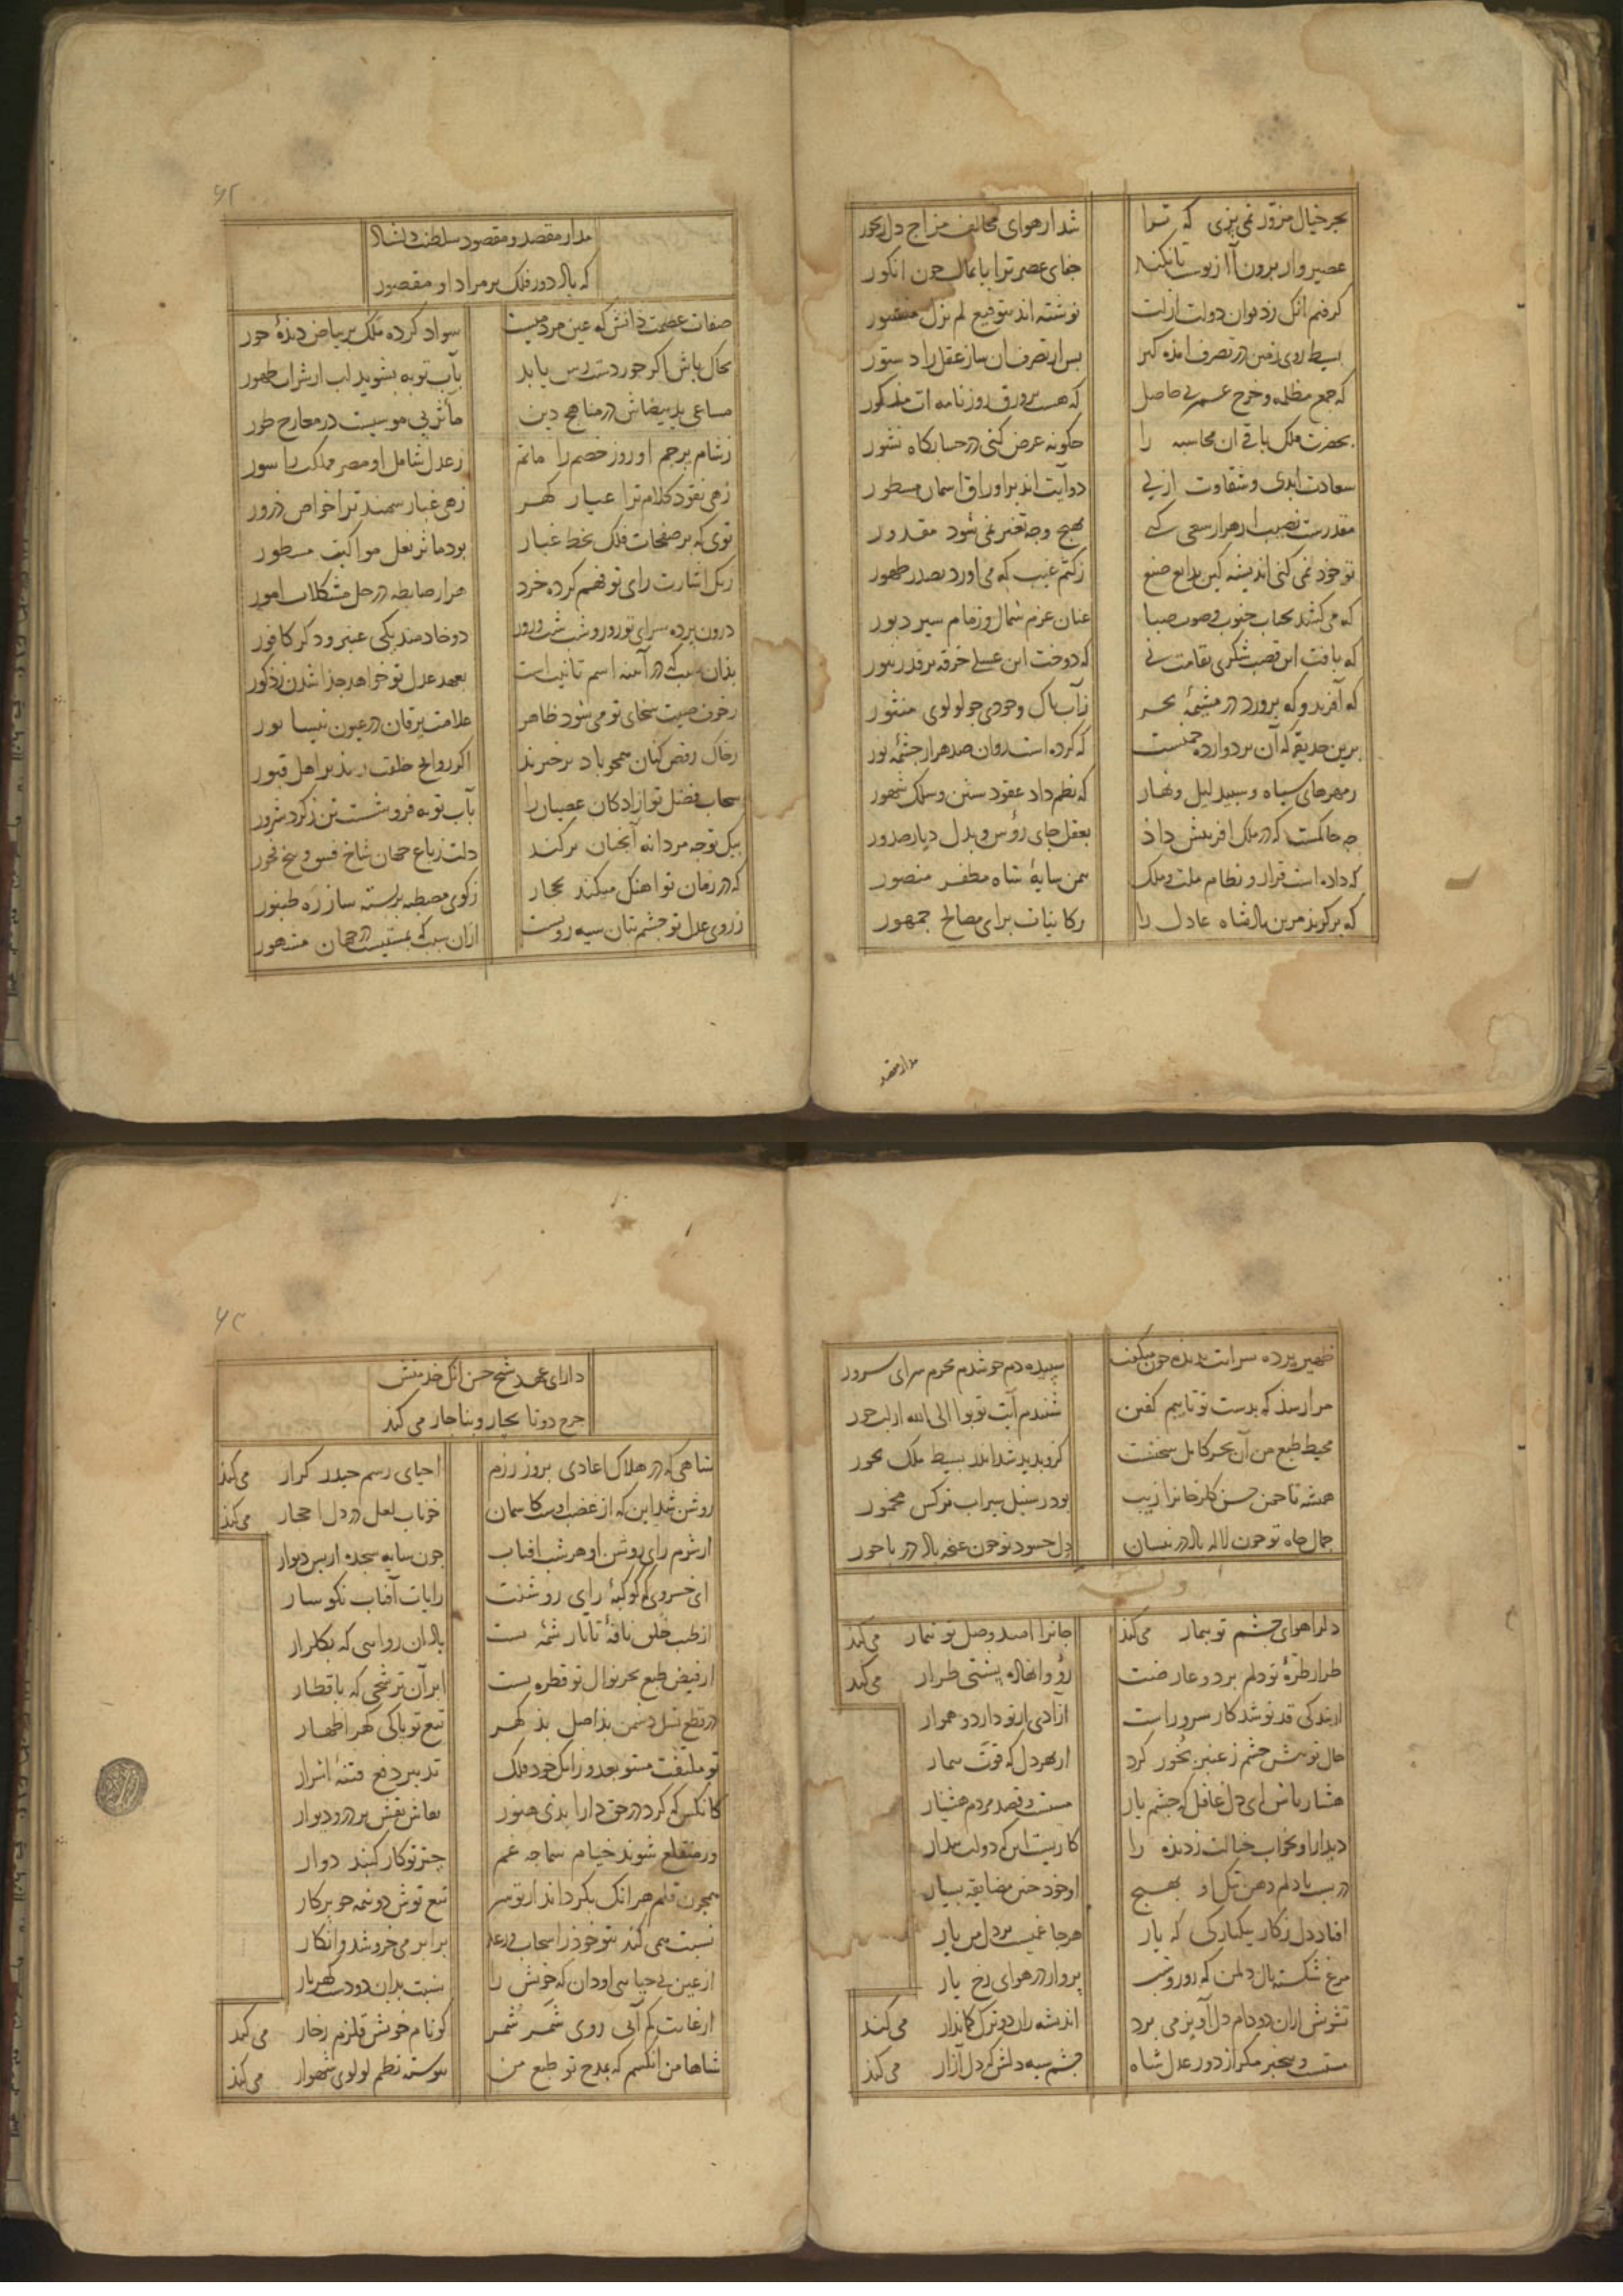 بجز خیال مزور نمی‌پزی که ترا شد از هوای مخالف مزاج دل رنجور
عصیر وار برون آ از پوست تا نکند جفای عصر ترا پایمال چون انکور
کرفتم آنک ز دیوان دولت ازلت نوشته اند بتوقیع لم یزل منشور
بسیط روی زمین در تصرف آمده کیر پس از تصرف آن ساز عقل را دستور
که جمع مظلمه و خرج عمر بی حاصل که هست بر ورق روزنامه ات مذکور
بحضرت ملک باقی آن محاسبه را چکونه عرض کنی در حسابکاه نشور
سعادت ابدی و شقاوت ازلی دو آیت اند بر اوراق آسمان مسطور
مقدرست نصیب از هزار سعی کنی بهیچ وجه تغیر نمی شود مقدور
تو خود نمی کنی اندیشه کین بدایع صنع ز کتم غیب که می آورد بصدر ظهور
که می کشد بجناب جنوب و صوب صبا عنان عزم شمال و زمام سیر دبور
که بافت این قصب شکری بقامت نی که دوخت این عسلی خرقه بر قد زنبور
که آفرید و که پرورد در مشیمهٔ بحر ز آب پاک وجودی چو لولوی منثور
برین حدیقه که آن بر دوازده چمنست که کرده است روان صد هزار چشمهٔ نور
ز مهرهای سیاه و سپید لیل و نهار که نظم داد عقود سنین و سلک شهور
چه حاکمست که در ملک آفرینش داد بعقل جای رؤس و بدل دیار صدور
که داده است قرار و نظام ملت و ملک بیمن سایهٔ شاه مظفر منصور
که برکزید مرین پادشاه عادل را ز کاینات برای مصالح جمهور
مدار مقصد
۶۲
مدار مقصد و مقصود سلطنت دلشاد
که باد دور فلک بر مراد او مقصور
صفات عصمت ذاتش که عین مردمیست سواد کرده ملک بر بیاض دیدهٔ حور
بخاک پاش اکر حور دست رس یابد بآب توبه بشوید لب از شراب طهور
مساعی ید بیضاش در مناهج دین مآثر پی موسیست در معارج طور
ز شام پرچم او روز خصم را ماتم ز عدل شامل او مصر مملکت را سور
زهی نقود کلام ترا عیار کهر زهی غبار سمند ترا خواص ذرور
توی که بر صفحات فلک بخط غبار بود مآثر نعل مواکبت مسطور
ز یک اشارت رای تو فهم کرده خرد هزار ضابطه در حل مشکلات امور
درون پرده سرای تو روز و شب شب و روز دو خادمند یکی عنبر و دکر کافور
بدان سبب که در آینه اسم تانیث است بعهد عدل تو خواهد جدا شدن ز ذکور
ز خون صیت سخای تو می شود ظاهر علامت یرقان در عیون نیسابور
ز خاک رقص کنان همچو باد برخیزند اکر روایح خلقت رسد بر اهل قبور
سحاب فضل تو آزادکان عصیان را بآب توبه فرو شست تن ز کرد شرور
بیک توجه مردانه آنچنان برکند دلت ز باغ جهان شاخ فسق و بیخ فجور
که در زمان تو آهنک میکند بحجاز ز کوی مصطبه بربسته ساز ره طنبور
ز روی عدل تو چشم بتان سیه رویست از آن سبب که بمستیست در جهان مشهور
ظهیر پرده سرایت بدیده چون میکفت سپیده دم چو شدم محرم سرای سرور
مرا رسد که بدست تو تا بیم کفن شنیدم آیت توبوا الی الله از لب حور
محیط طبع من آن بحر کامل سخنست کزو پدید شد اندر بسیط ملک بحور
همیشه تا چمن حسن کلرخان را زیب بود ز سنبل سیراب و نرکس مخمور
جمال جاه تو چون لاله باد در نیسان دل حسود تو چون غنچه باد در باحور
وله
دل را هوای چشم تو بیمار می کند جان را امید وصل تو تیمار می کند
طرار طرهٔ تو دلم برد و عارضت رو وا نهاده پشتی طرار می کند
از بندکی قد تو شد کار سرو راست آزادی از تو دارد و هموار
خال تو پیش چشم ز عنبر بخور کرد از بهر دل که قوت بیمار
هشیار باش ای دل غافل که چشم یار مستست و قصد مردم هشیار
دیدار او بخواب خیالت ز دیده را کاریست این که دولت بیدار
دربست با دلم دهن تنک او بهیچ او خود چنین مضایقه بسیار
افتاد دل ز کار بیکبارکی که یار هر جا غمیست بر دل من بار
مرغ شکسته بال دل من که روز و شب پرواز در هوای رخ یار
تشویش از آن دو دام دل آویز می برد اندیشه زان دو ترک کماندار می کند
مستست و بیخبر مکر از دور عدل شاه چشم سیه دلش که دل آزار می کند
۶۳
دارای عهد شیخ حسن آنک خدمتش
چرخ دوتا بچار و بناچار می کند
شاهی که در هلاک اعادی بروز رزم احیای رسم حیدر کرار می کند
روشن شد این که از غضب اوست کاسمان خوناب لعل در دل احجار می کند
از شرم رای روشن او هر شب آفتاب چون سایه سجده از پس دیوار
ای خسروی که کوکبهٔ رای روشنت رایات آفتاب نکوسار
از طیب خلق نافهٔ تاتار شمهٔ بست باد آن روایحی که بکلزار
از فیض طبع بحر نوال تو قطره بست ابر آن ترشحی که باقطار
در قطع نسل دشمن بد اصل بد کهر تیغ تو پاکی کهر اظهار
تو ملتفت مشو بعدو زانک خود فلک تدبیر دفع فتنهٔ اشرار
کانکس که کرد در حق دارا بدی هنوز نقاش نقش بر در و دیوار
ور منقطع شوند خیام سماجه غم چتر تو کار کنبد دوار
همچون قلم هر آنک بکرداند از تو سر تیغ توش دو نیمه چو پرکار
نسبت همی کند بتو خود را سحاب و رعد برابر می خروشد و انکار
از عین بی حیایی او دان که خویش را نسبت بدان دو دست کهربار
از غایت کم آبی روی شمر شمر کو نام خویش قلزم زخار می کند
شاها من آنکسم که بمدح تو طبع من پیوسته نظم لولوی شهوار می کند